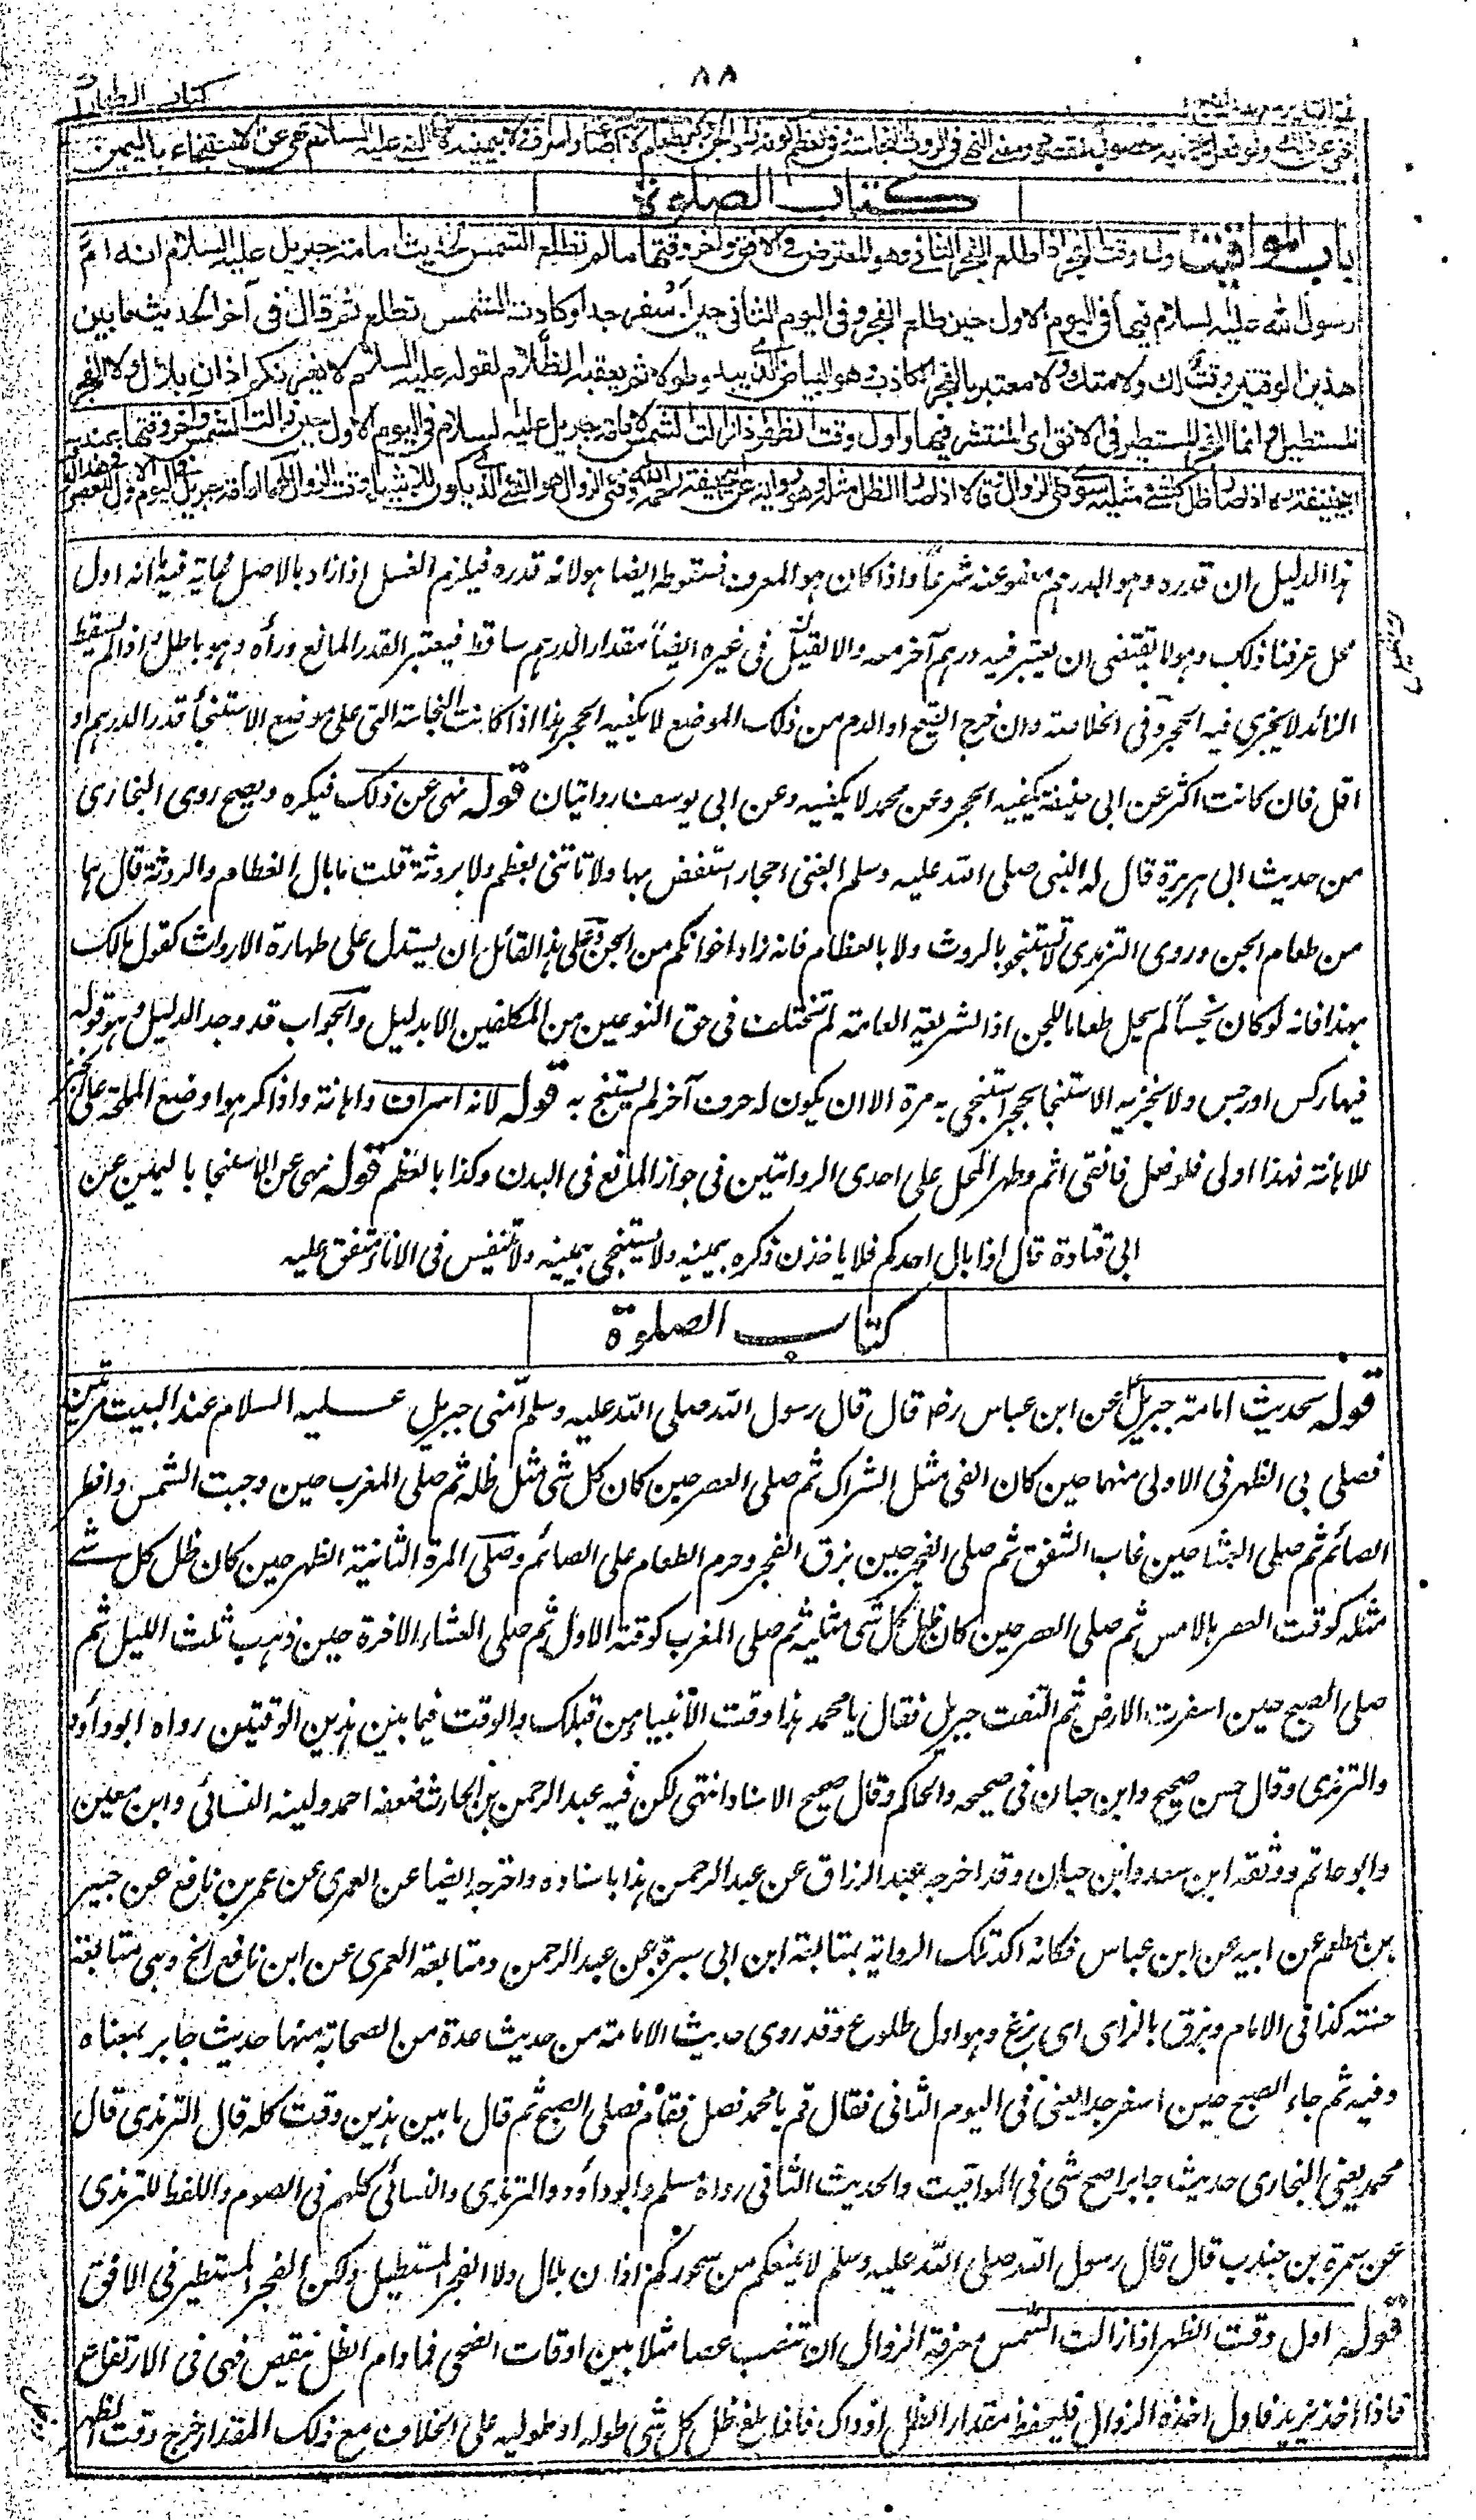 ٨٨
كتاب الطهارات
نهى عن ذلك ولو فعل يجزيه لحصول المقصود ومعنى النهي في الروث النجاسة وفي العظم كونه زاد الجن ولا بطعام لانه اضاعة واسراف ولا بيمينه لان النبي عليه السلام نهى عن الاستنجاء باليمين
كتاب الصلوة
باب المواقيت اول وقت الفجر اذا طلع الفجر الثاني وهو المعترض في الافق وآخر وقتها ما لم تطلع الشمس لحديث امامة جبريل عليه السلام انه امّ
رسول الله عليه السلام فيها في اليوم الاول حين طلع الفجر وفي اليوم الثاني حين اسفر جدا وكادت الشمس تطلع ثم قال في آخر الحديث ما بين
هذين الوقتين وقت لك ولامتك ولا معتبر بالفجر الكاذب وهو البياض الذي يبدو طولا ثم يعقبه الظلام لقوله عليه السلام لا يغرنكم اذان بلال ولا الفجر
المستطيل وانما الفجر المستطير في الافق اى المنتشر فيها واول وقت الظهر اذا زالت الشمس لامامة جبريل عليه السلام في اليوم الاول حين زالت الشمس وآخر وقتها عند
ابي حنيفة ره اذا صار ظل كل شئ مثليه سوى فئ الزوال وقالا اذا صار الظل مثله وهو رواية عن ابي حنيفة رحمه الله وفئ الزوال هو الفئ الذي يكون للاشياء وقت الزوال لهما امامة جبريل في اليوم الاول للعصر
هذا الدليل ان قدره وهو الدرهم معفو عنه شرعاً واذا كان هو المعرف فسقوطه ايضا هو لانه قدره فيلزم الغسل اذا زاد بالاصل نهاية فيه انه اول
محل عرفنا ذلك وهو لا يقتضى ان يعتبر فيه درهم آخر معه والا لقيل في غيره ايضاً مقدار الدرهم ساقط فيعتبر القدر المانع ورأه وهو باطل واذا لم يسقط
الزائد لا يجزى فيه الحجر وفى الخلاصة وان خرج القيح او الدم من ذلك الموضع لا يكفيه الحجر هذا اذا كانت النجاسة التى على موضع الاستنجأ قدر الدرهم او
اقل فان كانت اكثر عن ابى حنيفة يكفيه الحجر وعن محمد لا يكفيه وعن ابى يوسف روايتان قوله نهى عن ذلك فيكره ويصح روى البخارى
من حديث ابى هريرة قال له النبى صلى الله عليه وسلم ابغنى احجار استنفض بها ولا تاتنى بعظم ولا بروثة قلت ما بال العظام والروثة قال هما
من طعام الجن وروى الترمذى لا تستنجوا بالروث ولا بالعظام فانه زاد اخوانكم من الجن وعلى هذا القائل ان يستدل على طهارة الارواث كقول مالك
بهذا فانه لو كان نجساً لم يحل طعاما للجن اذ الشريعة العامة لم تختلف فى حق النوعين من المكلفين الا بدليل والجواب قد وجد الدليل وهو قوله
فيها ركس او رجس ولا يجزيه الاستنجا بحجر استنجى به مرة الا ان يكون له حرف آخر لم يستنج به قوله لانه اسراف واهانة واذا كرهوا وضع المملحة على الخبز
للاهانة فهذا اولى فلو فعل فانقى اثم وطهر المحل على احدى الروايتين فى جواز المائع فى البدن وكذا بالعظم قوله نهى عن الاستنجا باليمين عن
ابى قتادة قال اذا بال احدكم فلا ياخذن ذكره بيمينه ولا يستنجى بيمينه ولا يتنفس فى الاناء متفق عليه
كتاب الصلوة
قوله لحديث امامة جبريل عن ابن عباس رضـ قال قال رسول الله صلى الله عليه وسلم امنى جبريل عليه السلام عند البيت مرتين
فصلى بى الظهر فى الاولى منهما حين كان الفى مثل الشراك ثم صلى العصر حين كان كل شى مثل ظله ثم صلى المغرب حين وجبت الشمس وافطر
الصائم ثم صلى العشا حين غاب الشفق ثم صلى الفجر حين بزق الفجر وحرم الطعام على الصائم وصلى المرة الثانية الظهر حين كان ظل كل شے
مثله كوقت العصر بالامس ثم صلى العصر حين كان ظل كل شى مثليه ثم صلى المغرب كوقته الاول ثم صلى العشاء الاخرة حين ذهب ثلث الليل ثم
صلى الصبح حين اسفرت الارض ثم التفت جبريل فقال يا محمد هذا وقت الانبياء من قبلك والوقت فيما بين هذين الوقتين رواه ابو داود
والترمذى وقال حسن صحيح وابن حبان فى صحيحه والحاكم وقال صحيح الاسناد انتهى لكن فيه عبد الرحمن بن الحارث ضعفه احمد ولينه النسائى وابن معين
وابو حاتم ووثقه ابن سعد وابن حبان وقد اخرجه عبد الرزاق عن عبد الرحمن هذا باسناده واخرجه ايضا عن العمرى عن عمر بن نافع عن جبير
بن مطعم عن ابيه عن ابن عباس فكانه اكد تلك الرواية بمتابعة ابن ابى سبرة عن عبد الرحمن ومتابعة العمرى عن ابن نافع الخ وهى متابعة
حسنة كذا فى الامام وبزق بالزاى اى بزغ وهو اول طلوع وقد روى حديث الامامة من حديث عدة من الصحابة منها حديث جابر بمعناه
وفيه ثم جاء الصبح حين اسفر جدا يعنى فى اليوم الثانى فقال قم يا محمد فصل فقام فصلى الصبح ثم قال ما بين هذين وقت كله قال الترمذى قال
محمد يعنى البخارى حديث جابر اصح شى فى المواقيت والحديث الثانى رواه مسلم وابو داود والترمذى والنسائى كلهم فى الصوم واللفظ للترمذى
عن سمرة بن جندب قال قال رسول الله صلى الله عليه وسلم لا يمنعكم من سحوركم اذان بلال ولا الفجر المستطيل ولكن الفجر المستطير فى الافق
قوله اول وقت الظهر اذا زالت الشمس معرفة الزوال ان تنصب عصا مثلا بين اوقات الضحى فما دام الظل ينقص فهى فى الارتفاع
فاذا اخذ يزيد فاول اخذه الزوال فليحفظ مقدار الظل اذ ذاك فاذا بلغ ظل كل شى طوله او طوليه على الخلاف مع ذلك المقدار خرج وقت الظهر